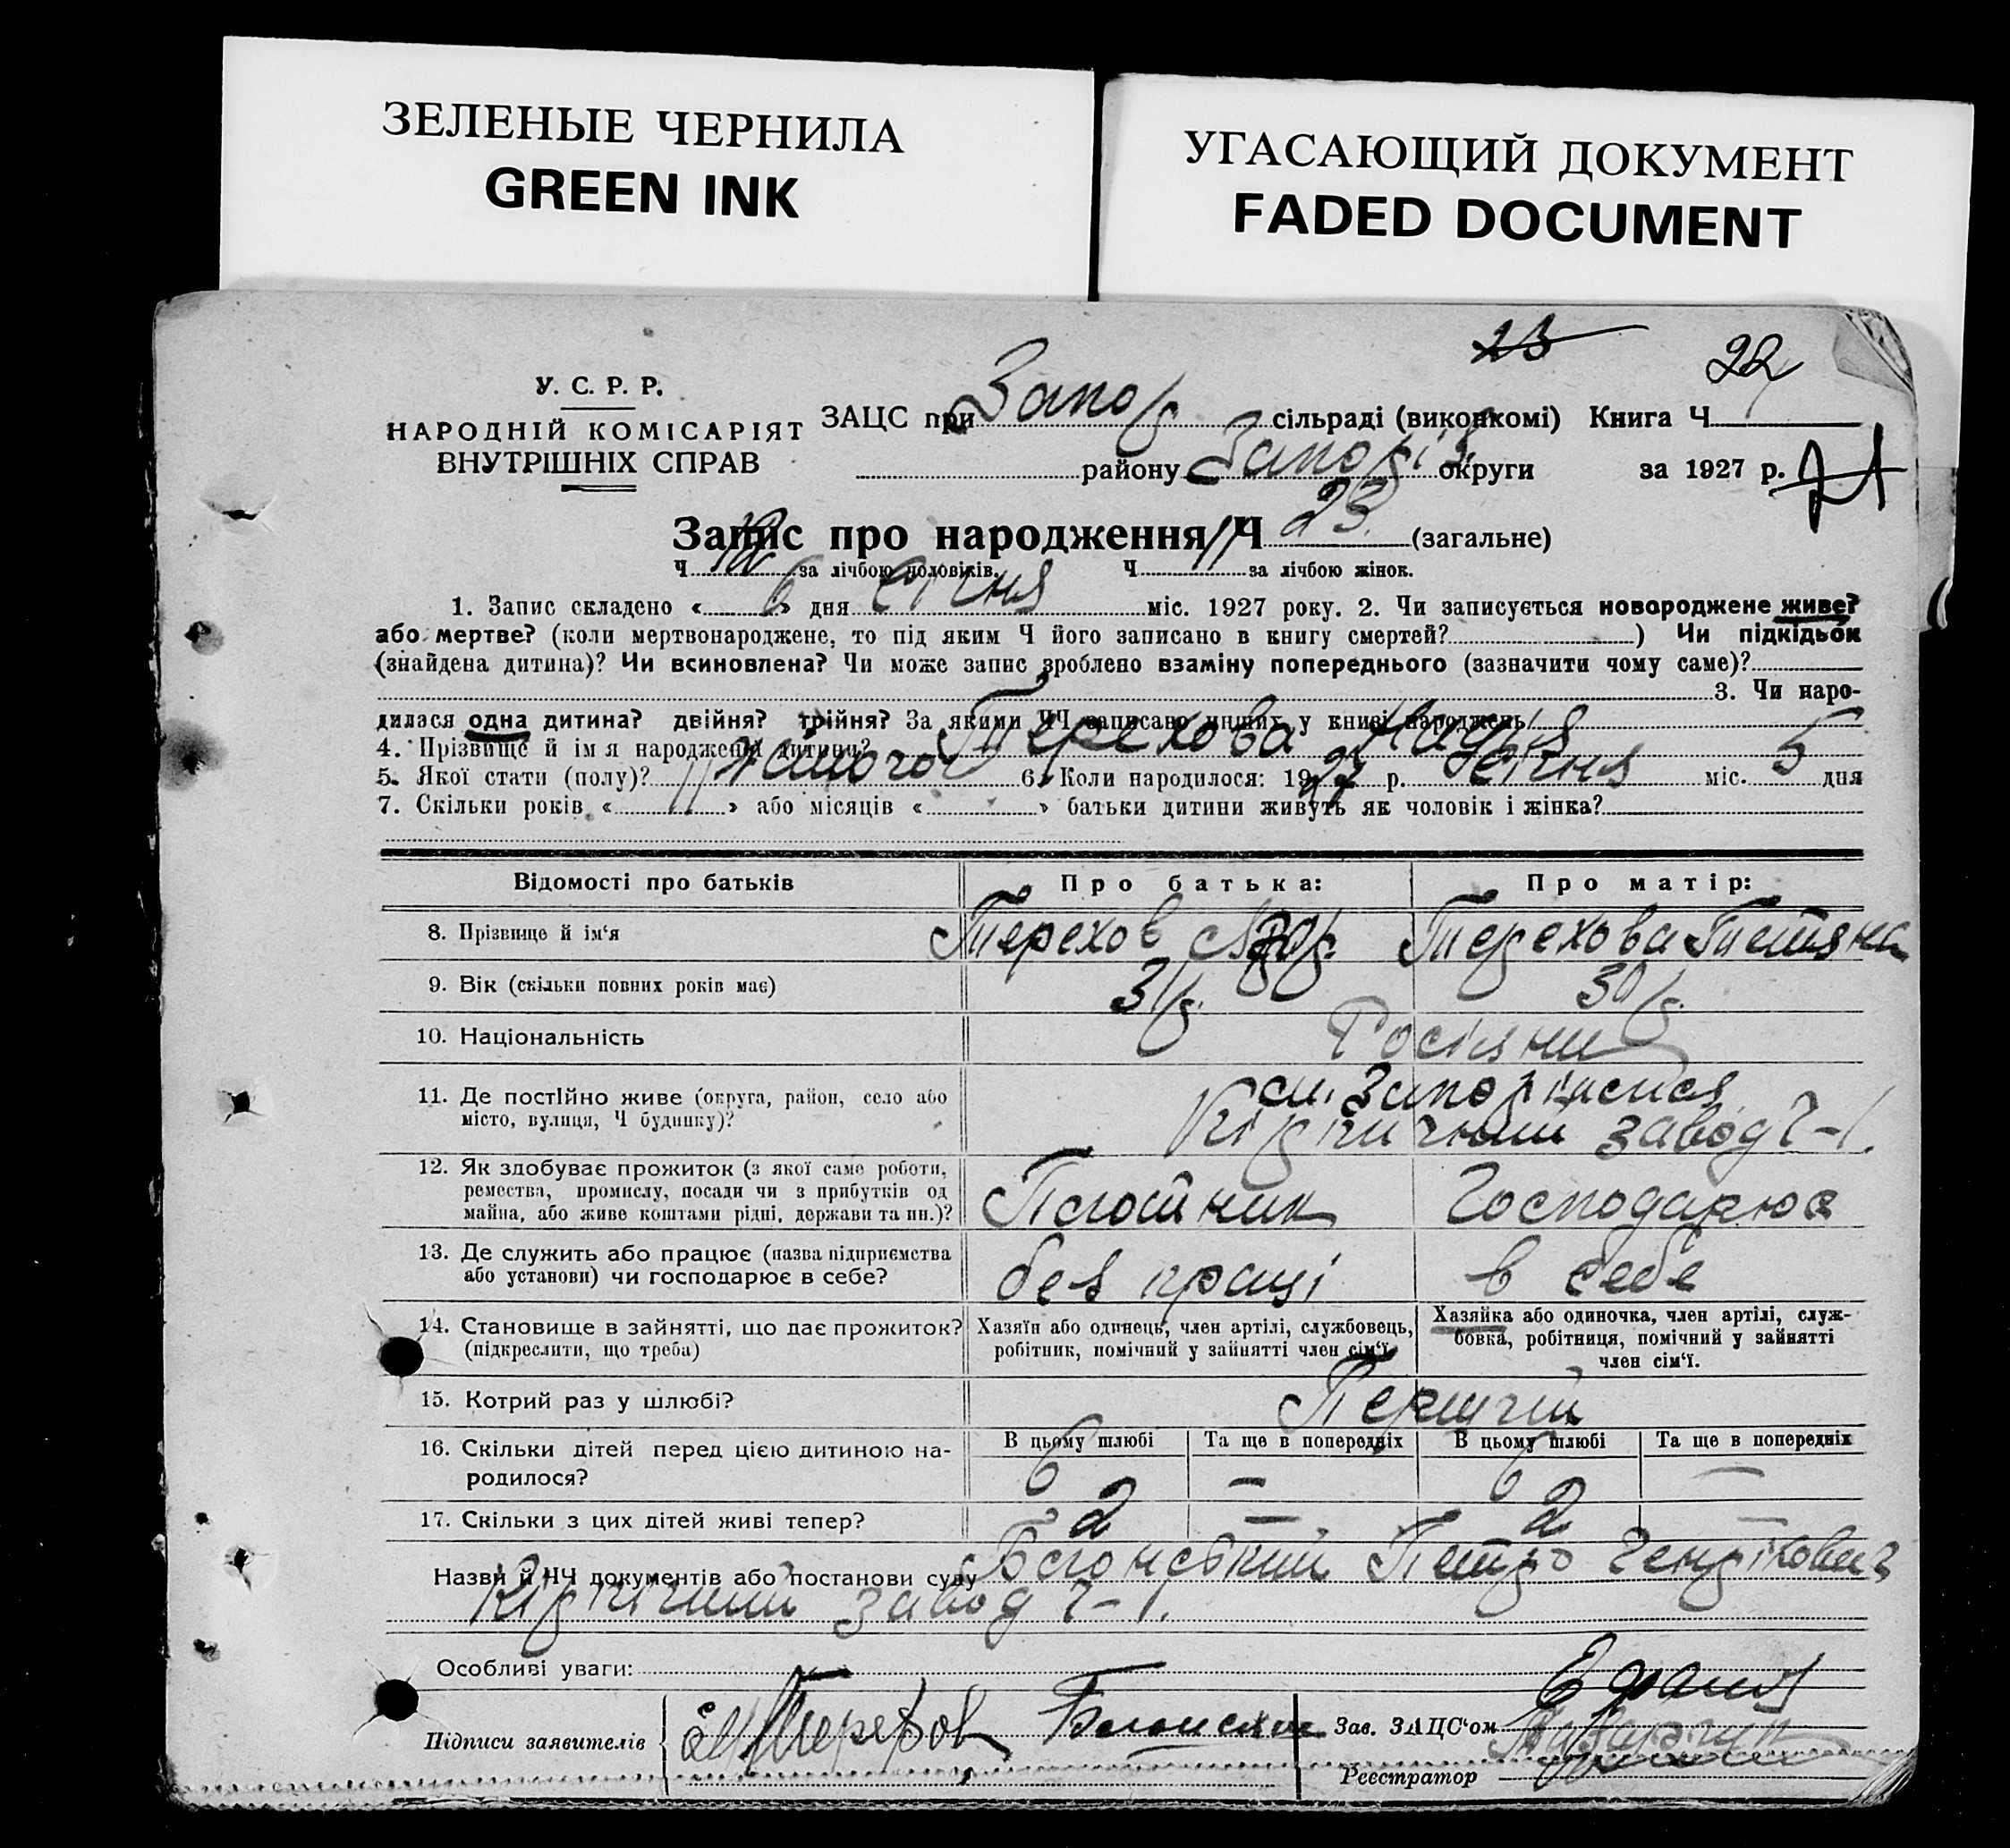 ЗЕЛЕНЫЕ ЧЕРНИЛА
GREEN INK
УГАСАЮЩИЙ ДОКУМЕНТ
FADED DOCUMENT
23
22
У. С. Р. Р.
НАРОДНІЙ КОМІСАРІЯТ
ВНУТРІШНІХ СПРАВ
ЗАЦС при Запор сільраді (виконкомі) Книга Ч
району Запоріз округи за 1927 р.
Запис про народження Ч 23 (загальне)
Ч 12 за лічбою чоловіків. Ч 11 за лічбою жінок.
1. Запис складено « 6 » дня Січня міс. 1927 року. 2. Чи записується новороджене живе?
або мертве? (коли мертвонароджене, то під яким Ч його записано в книгу смертей? ) Чи підкідьок
(знайдена дитина)? Чи всиновлена? Чи може запис зроблено взаміну попереднього (зазначити чому саме)?
3. Чи наро-
дилася одна дитина? двійня? трійня? За якими ЧЧ записано инших у книзі народжень
4. Прізвище й ім я народженої дитини? Терехова Надія
5. Якої стати (полу)? Жіночої 6. Коли народилося: 1927 р. Січня міс. 5 дня
7. Скільки років « 11 » або місяців « » батьки дитини живуть як чоловік і жінка?
Відомості про батьків
Про батька:
Про матір:
8. Прізвище й ім‘я Терехов Терехова Тетяна
9. Вік (скільки повних років має) 31 р. 30 р.
10. Національність Росіяни
11. Де постійно живе (округа, район, село або
місто, вулиця, Ч будинку)?
м. Запоріжжя
Кірпичний завод Ч-1.
12. Як здобуває прожиток (з якої саме роботи,
ремества, промислу, посади чи з прибутків од
майна, або живе коштами рідні, держави та ин.)?
Плотник Господарює
13. Де служить або працює (назва підприємства
або установи) чи господарює в себе?
без праці в себе
14. Становище в зайнятті, що дає прожиток?
(підкреслити, що треба)
Хазяїн або одинець, член артілі, службовець,
робітник, помічний у зайнятті член сім‘ї
Хазяйка або одиночка, член артілі, служ-
бовка, робітниця, помічний у зайнятті
член сім‘ї.
15. Котрий раз у шлюбі? Перший
16. Скільки дітей перед цією дитиною на-
родилося?
В цьому шлюбі Та ще в попередніх В цьому шлюбі Та ще в попередніх
6 – 6 –
17. Скільки з цих дітей живі тепер? 2 – 2 –
Назви й ЧЧ документів або постанови суду Блонський Петро Генрікович
Кірпічний завод Ч-1.
Особливі уваги:
Підписи заявителів Терехов Блонский
Зав. ЗАЦС‘ом
Реєстратор